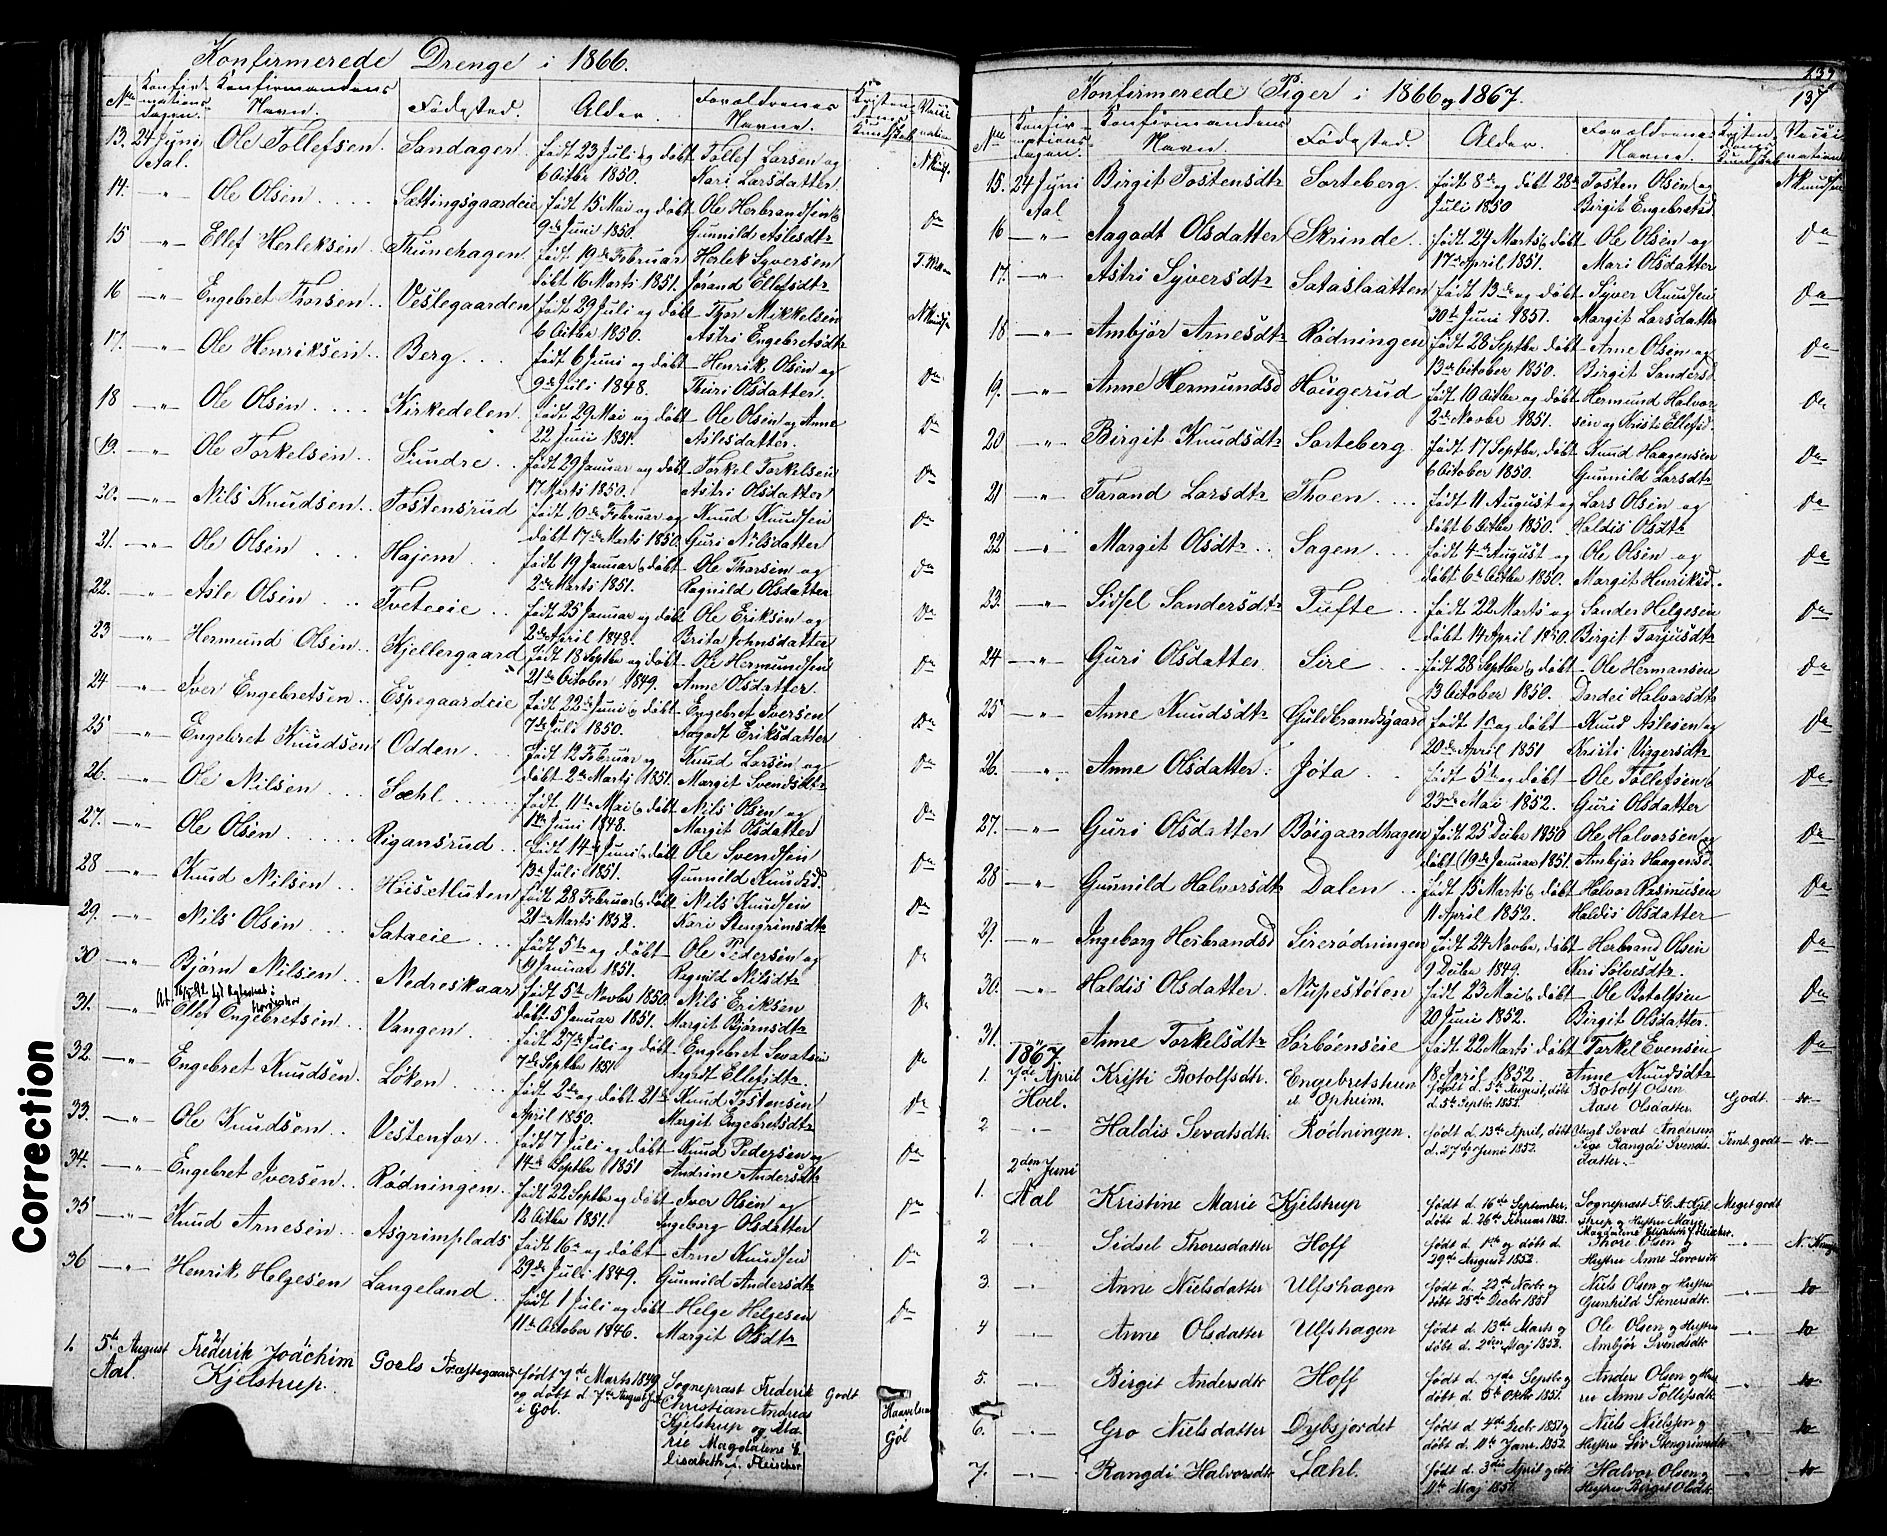 Konfirmerede Drenge i 1866.
No Konfirmationsdagen. Konfirmandens Navn. Fødested. Alder. Foreldrenes Navne. Kristendoms Kundskab Vaccination
13. 24 Juni Ole Tollefsen Sandager født 23 Juli og døbt Tollef Larsen og
Aal. 6 Octbr 1850. Kari Larsdatter
14. " Ole Olsen Sættingsgaardeie født 15 Mai og døbt Ole Herbrandsen
9de Juni 1850 Gunnild Aslesdtr Do
15 " Ellef Herleksen Thunehagen født 19de Februar Herlek Syversen
døbt 16 Marts 1851 Jørand Ellefsdtr
16 " Engebret Thorsen Veslegaarden født 29 Juli og døbt Thor Mikkelsen
6 Octbr 1850. Astri Engebretsdtr
17. " Ole Henriksen Berg født 6 Juni og døbt Henrik Olsen og Do
9de Juli 1848. Thuri Olsdatter
18 " Ole Olsen Kirkedelen født 29 Mai og døbt Ole Olsen og Anne Do
22 Juni 1851. Aslesdatter.
19. " Ole Torkelsen Sundre født 29 Januar og døbt Torkel Torkelsen Do
17 Marts 1850. Astri Olsdatter
20. " Nils Knudsen Tostensrud født 10de Februar og Knud Knudsen Do
døbt 17de Marts 1850 Guri Nilsdatter
21. " Ole Olsen Hajem født 19 Januar døbt Ole Thorsen og Do
2de Marts 1851. Ragnild Olsdatter
22. " Asle Olsen Tveteeie født 25 Januar og døbt Ole Eriksen og Do
2de April 1848. Brita Johnsdatter
23 " Hermund Olsen Kjellergaard født 18 Septbr og døbt Ole Hermundsen Do
21de October 1849. Anne Olsdatter
24 " Iver Engebretsen Espegaardeie født 22de Juni døbt Engebret Iversen Do
7de Juli 1850. Aagodt Eriksdatter
25 " Engebret Knudsen Odden født 12 Februar og Knud Larsen og Do
døbt 2de Marts 1851. Margit Svendsdtr
26. " Ole Nilsen Sæhl født 11te Mai døbt Nils Olsen og Do
Juni 1848. Margit Olsdatter
27. " Ole Olsen Rigansrud født 14de Juni døbt Ole Svendsen Do
13de Juli 1851. Gunnild Knudsd.
28 " Knud Nilsen født 28 Februar døbt Nils Knudsen Do
21de Marts 1852. Kari Stengrimsdtr
29. " Nils Olsen Sataeie født 5te og døbt Ole Pedersen og Do
19 Januar 1851. Ragnild Nilsdtr
30 " Bjørn Nilsen Nedreskaar født 5te Novbr 1850 Nils Eriksen Do
døbt 5 Januar 1851. Margit Bjørnsdtr
31. " Ellef Engebretsen Vangen født 27de Juli og døbt Engebret Sevatsen Do
7de Septbr 1851 Aagodt Ellefsdtr.
32. " Engebret Knudsen Løken født 2de og døbt 21de Knud Tostensen Do
April 1850. Margit Engebretsdtr
33. " Ole Knudsen Vestenfor født 7 Juli og døbt Knud Pedersen og Do
14de Septbr 1851 Andrine Andersdtr
34. " Engebret Iversen Rødningen født 22 Septbr og døbt Iver Olsen og Do
12 Octbr 1851. Ingeborg Olsdatter
35 " Knud Arnesen Asgrimplads født 16de og døbt Arne Knudsen Do
29de Juli 1849. Gunnild Andersdtr
36 " Henrik Helgesen Langeland født 1 Juli og døbt Helge Helgesen Do
11te October 1846. Margit Olsdtr
1. 5te August Frederik Joachim Gols Præstegaard født 7de Marts 1849 Sognepræst Frederik Godt
Aal. Kjelstrup. og døbt d. 7de August Christian Andreas Haavelsen
i Gol. Kjelstrup og Ma- Gol
rie Magdalene E-
lisabeth f. Fleischer
Correction
137
Konfirmerede Piger i 1866 og 1867.
No Konfirmationsdagen. Konfirmandens Navn. Fødested. Alder. Foreldrenes Navne. Kristendoms Kundskab Vaccination
15. 24 Juni Birgit Tostensdtr Sorteberg. født 8de og døbt 28de Tosten Olsen og
Aal Juli 1850 Birgit Engebretsd.
16 " Aagodt Olsdatter Skrinde født 24 Marts døbt Ole Olsen og Do
17de April 1851. Mari Olsdatter
17. " Astri Syversdtr Sataslaatten født 13de og døbt Syver Knudsen Do
30te Juni 1851. Margit Larsdatter
18 " Ambjør Arnesdtr Rødningen født 28 Septbr døbt Arne Olsen og Do
13de October 1850. Birgit Sandersd
19. " Anne Hermundsd Haugerud født 10 Octbr og døbt Hermund Halvor- Do
2de Novbr 1851. sen og Kristi Ellefsd
20 " Birgit Knudsdtr Sorteberg født 17 Septbr, døbt Knud Haagensen Do
6 October 1850. Gunnild Larsdtr
21 " Tarand Larsdtr Thoen født 11 August og Lars Olsen og Do
døbt 6 Octbr 1850. Haldis Olsdtr
22 " Margit Olsdtr Sagen født 4de August og Ole Olsen og Do
døbt 6te Octbr 1850. Margit Henriksd.
23. " Sidsel Sandersdtr Tufte født 22 Marts og Sander Helgesen Do
døbt 14 April 1850. Birgit Tarjusdtr
24 " Guri Olsdatter Sire født 28 Septbr døbt Ole Hermansen Do
13 October 1850. Dardei Halvorsdtr
25 " Anne Knudsdtr Guldbrandsgaard født 1ste og døbt Knud Aslesen og Do
20de April 1851 Kristi Viggersdtr
26. " Anne Olsdatter Jota født 5te og døbt Ole Tollefsen Do
23de Mai 1852. Guri Olsdatter
27. " Guri Olsdatter Bøigaardhagen født 25 Decbr 1850 Ole Halvorsen og Do
døbt 19de Januar 1851. Ambjør Haagensd.
28 " Gunnild Halvorsdtr Dalen født 15 Marts døbt Halvor Rasmusen Do
11 April 1852. Haldis Olsdatter
29. " Ingeborg Herbrandsd Sirerødningen født 24 Novbr, døbt Herbrand Olsen Do
9 Decbr 1849. Kari Sølvesdtr.
30. " Haldis Olsdatter Nupestølen født 23 Mai døbt Ole Botolfsen Do
20 Juni 1852. Birgit Olsdatter.
31. " Anne Torkelsdtr Sørbøenseie født 22 Marts døbt Torkel Evensen Do
1867. 18 April 1852. Anne Knudsdtr
1. 7de April Kristi Botolfsdtr. Engebretstuen født d. 5te August, døbt Botolf Olsen Godt do
Hoel. a. Opheim. d. 5te Septbr. 1852. Aase Olsdatter
2 " Haldis Sevatsdtr. Rødningen. født d. 13de April, døbt Ungk. Sevat Andersen Temt. godt do
d. 27de Juni 1852. Pige Rangdi Svends-
datter.
2den Juni
1. Aal Kristine Marie Kjelstrup født d. 16de September, Sognepræst F. C. A. Kjel- Meget godt
døbt d. 26de Februar 1852. strup og Hustru Marie
Magdalene Elisabeth f. Fleischer.
2 " Sidsel Thoresdatter Hoff født d. 1ste og døbt d. Thore Olsen og "
29de August 1852. Hustru Anne
3 " Anne Nielsdatter Ulfshagen født d. 22de Novbr og Niels Olsen og Hustru " do
døbt 25de Decbr 1851 Gunhild Stenersdtr.
4 " Anne Olsdatter Ulfshagen født d. 13de Marts og Ole Olsen og Hustru " do
døbt d. 2den Maj 1852. Ambjør Svendsdtr.
5. " Birgit Andersdtr Hoff født d. 7de Septbr og Anders Olsen og Hust- " do
døbt d. 5te Oktbr 1851. ru Anne Tollefsdtr.
6. " Gro Nielsdatter Dybsjordet født d. 4de Decbr 1851 og Niels Nielsen og " do
døbt d. 11te Janr. 1852. Hustru Liv Stengrimsdtr
7. " Rangdi Halvorsdtr. Sæhl. født d. 3die April og døbt Halvor Olsen og " do
11te Maj 1851. Hustru Birgit Olsdtr.